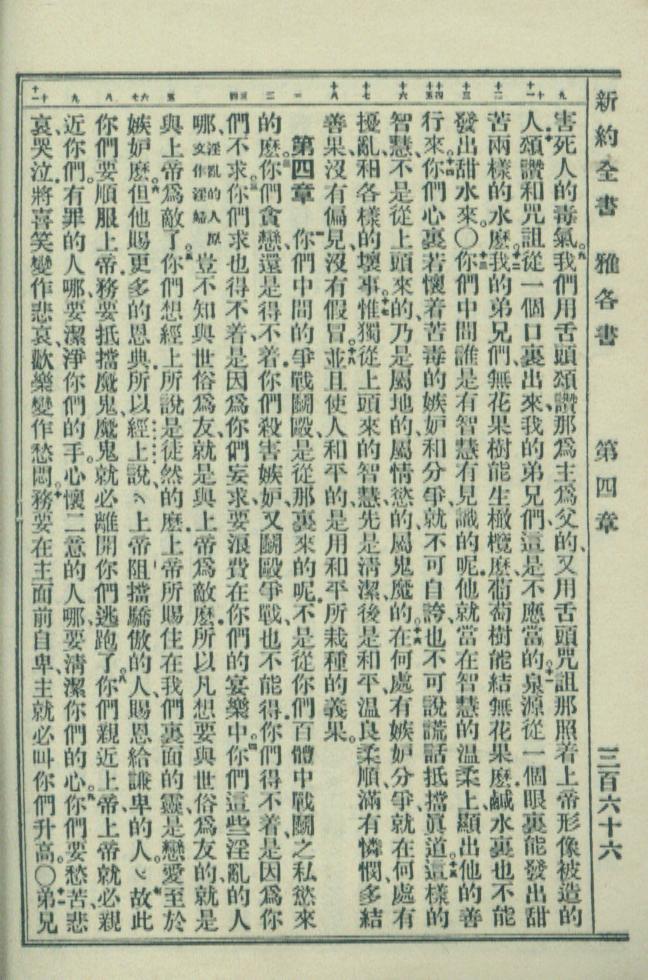 新約全書 雅各書 第四章 三百六十六
害死人的毒氣。我們用舌頭頌讚那爲主爲父的、又用舌頭咒詛那照着上帝形像被造的
人。頌讚和咒詛從一個口裏出來、我的弟兄們、這是不應當的。泉源從一個眼裏能發出甜
苦兩樣的水麼。我的弟兄們、無花果樹能生橄欖麼、葡萄樹能結無花果麼、鹹水裏也不能
發出甜水來。〇你們中間誰是有智慧有見識的呢、他就當在智慧的溫柔上顯出他的善
行來。你們心裏若懷着苦毒的嫉妒和分爭、就不可自誇、也不可說謊話抵擋眞道。這樣的
智慧、不是從上頭來的、乃是屬地的、屬情慾的、屬鬼魔的。在何處有嫉妒分爭、就在何處有
擾亂和各樣的壞事。惟獨從上頭來的智慧、先是清潔、後是和平、溫良柔順、滿有憐憫、多結
善果、沒有偏見、沒有假冒。並且使人和平的、是用和平所栽種的義果。
第四章 你們中間的爭戰鬭毆、是從那裏來的呢、不是從你們百體中戰鬭之私慾來
的麼。你們貪戀、還是得不着、你們殺害嫉妒、又鬭毆爭戰、也不能得、你們得不着、是因爲你
們不求。你們求也得不着、是因爲你們妄求、要浪費在你們的宴樂中。你們這些淫亂的人
哪、淫亂的人原文作淫婦豈不知與世俗爲友、就是與上帝爲敵麼、所以凡想要與世俗爲友的、就是
與上帝爲敵了。你們想經上所說是徒然的麼、上帝所賜住在我們裏面的靈、是戀愛至於
嫉妒麼。但他賜更多的恩典、所以經上說、上帝阻擋驕傲的人、賜恩給謙卑的人。故此
你們要順服上帝、務要抵擋魔鬼、魔鬼就必離開你們逃跑了。你們親近上帝、上帝就必親
近你們。有罪的人哪、要潔淨你們的手、心懷二意的人哪、要清潔你們的心。你們要愁苦、悲
哀、哭泣、將喜笑變作悲哀、歡樂變作愁悶。務要在主面前自卑、主就必叫你們升高。〇弟兄